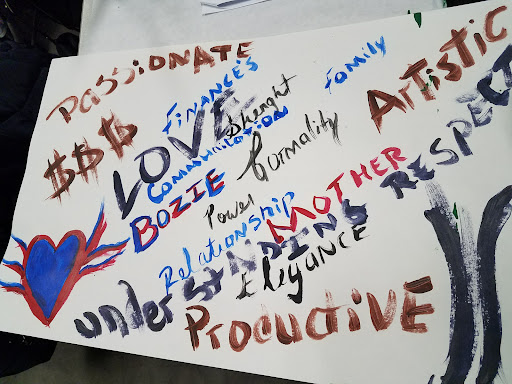 PASSIONATE
FINANCE'S
Family
ARTISTIC
$$$
LOVE
Strenght
COMMUNICATION
formality
RESPECT
BOZIE
Power
MOTHER
Relationship
UNDERSTANDING
Elegance
PRODUCTIVE